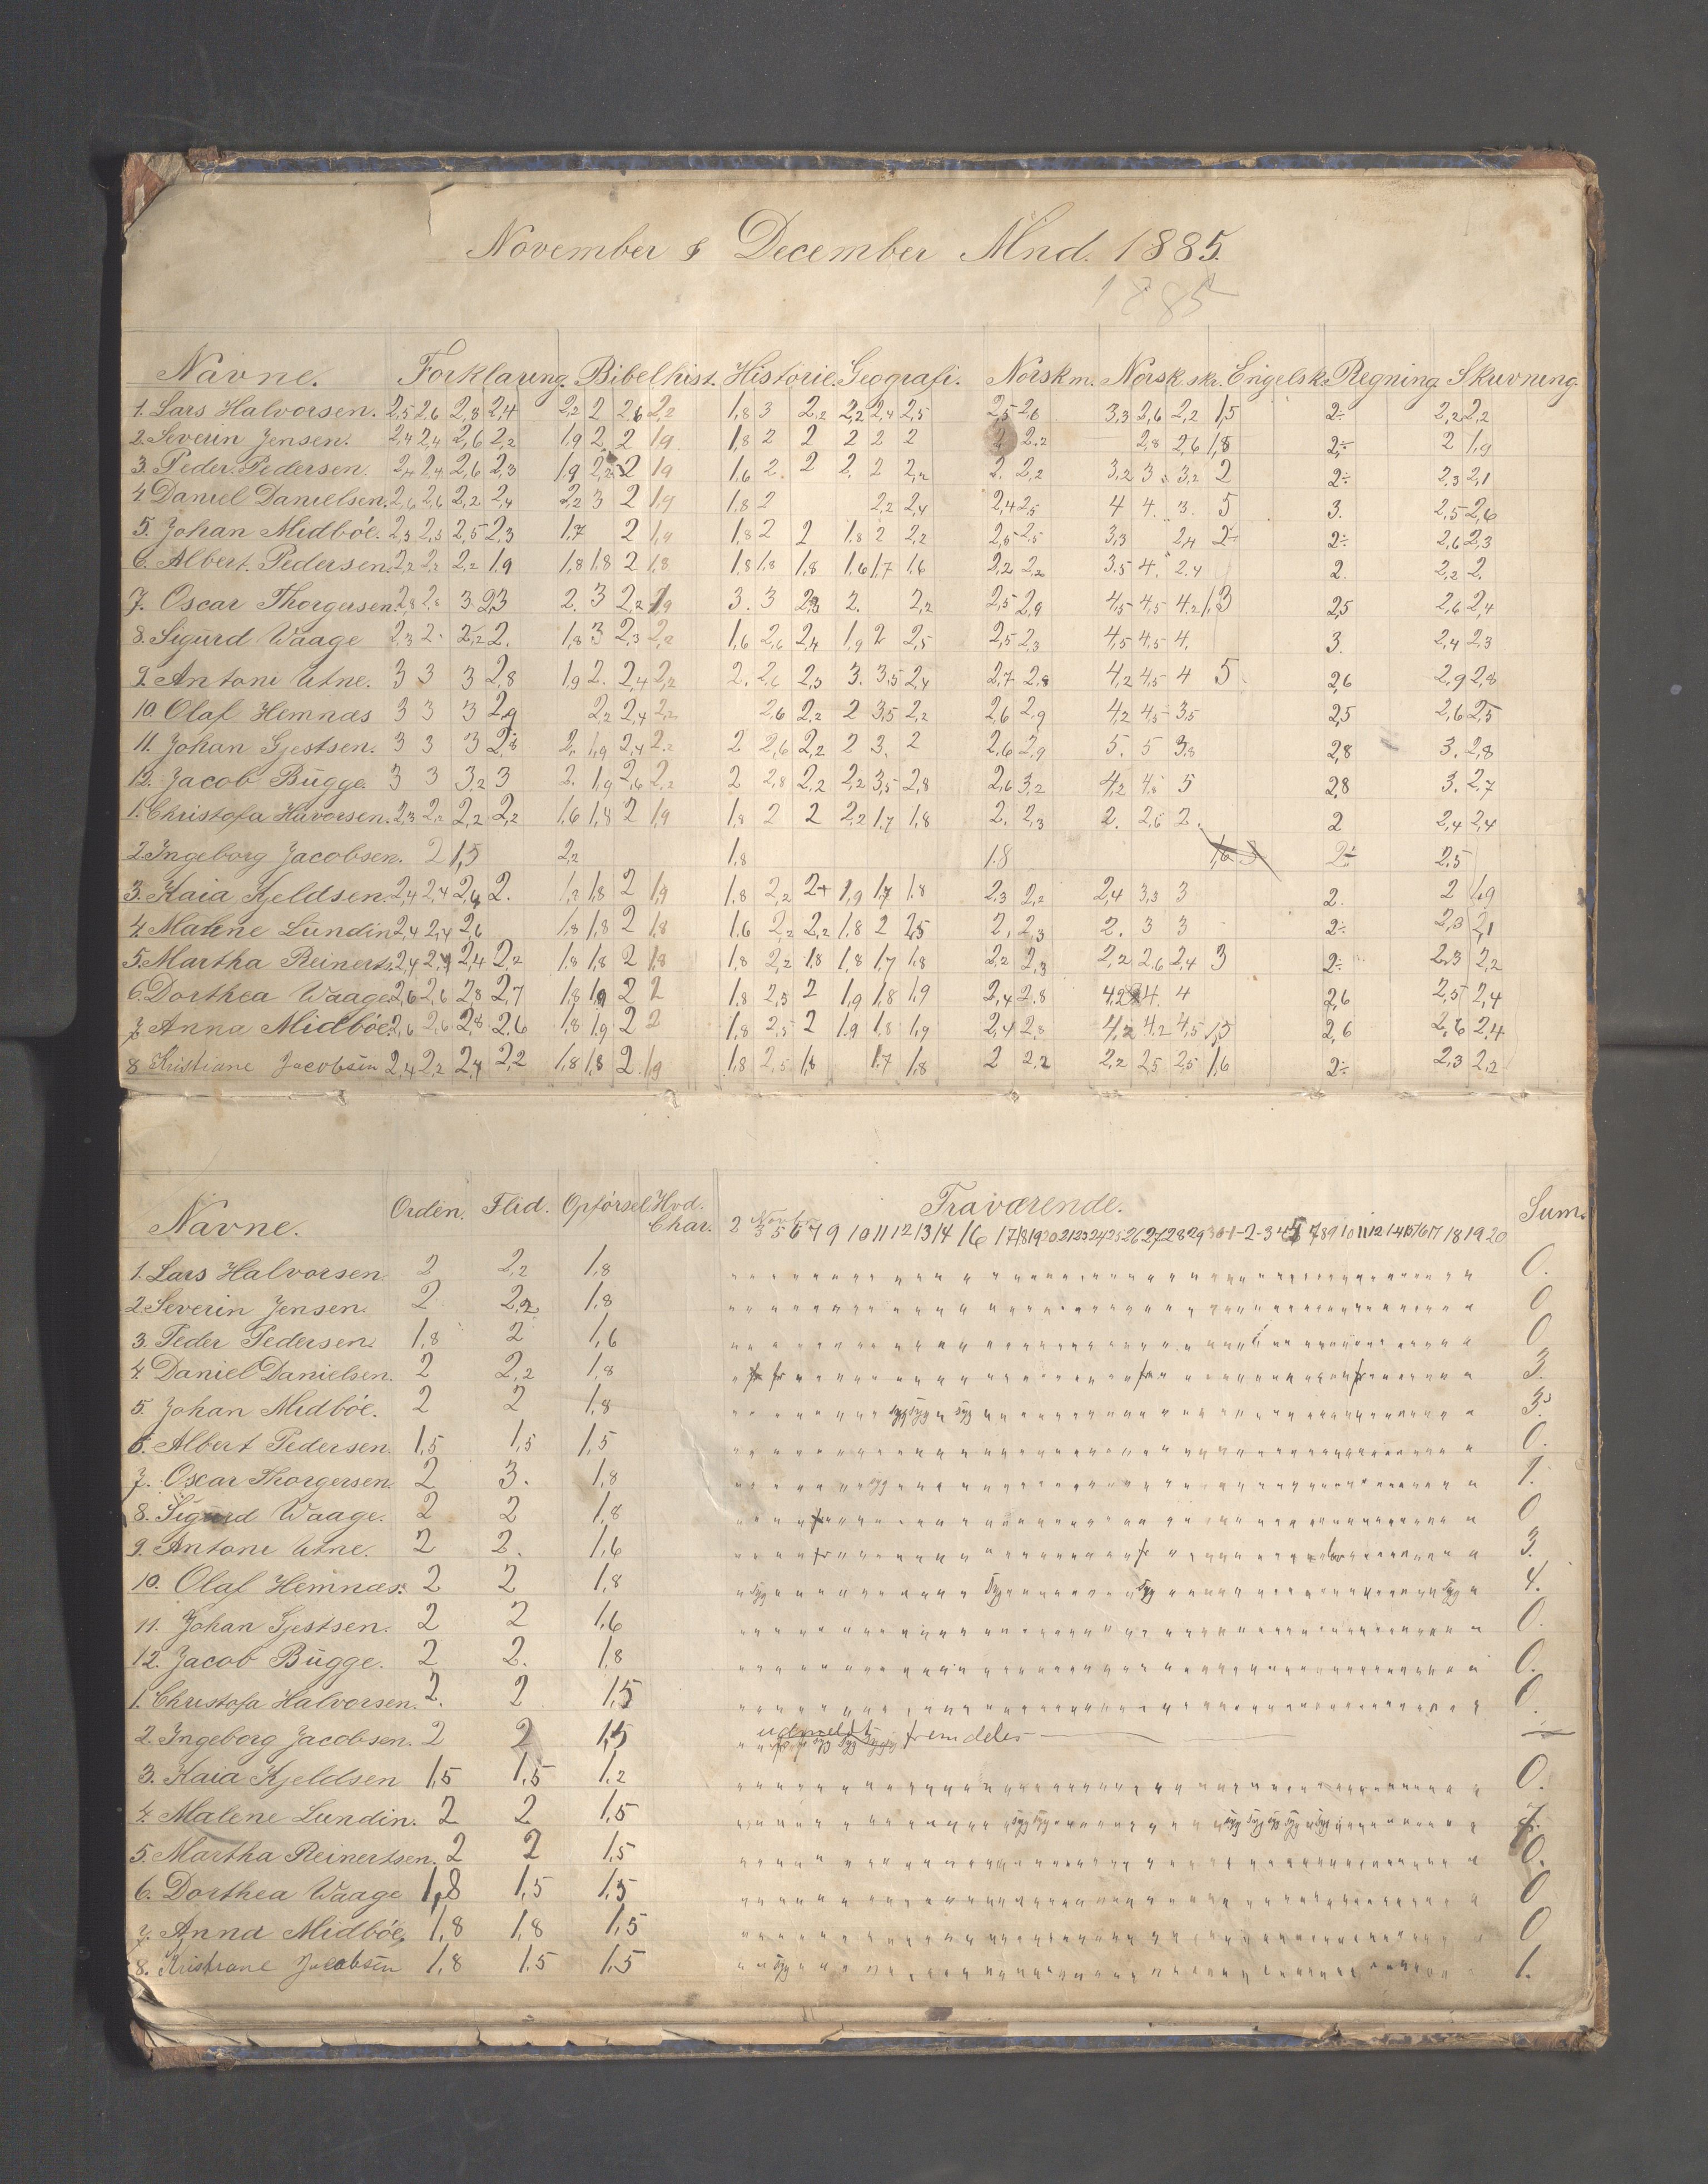 November & December Mnd. 1885.
1885
Navne. Forklaring. Bibelhist. Historie. Geografi. Norsk m. Norsk skr. Engelsk. Regning. Skrivning.
1. Lars Halvorsen. 2,5 2,6 2,8 2,4 2,2 2 2,6 2,2 1,8 3 2,2 2,2 2,4 2,5 2,5 2,6 3,3 2,6 2,2 1,5 2÷ 2,2 2,2
2. Severin Jensen. 2,4 2,4 2,6 2,2 1,9 2 2 1,9 1,8 2 2 2 2 2 2 2,2 2,8 2,6 1,8 2÷ 2 1,9
3. Peder Pedersen. 2,4 2,4 2,6 2,3 1,9 2,2 2 1,9 1,6 2. 2 2. 2 2,2 2. 2,2 3,2 3 3,2 2 2÷ 2,3 2,1
4. Daniel Danielsen. 2,6 2,6 2,2 2,4 2,2 3 2 1,9 1,8 2 2,2 2,4 2,4 2,5 4 4. 3. 5 3. 2,5 2,6
5. Johan Midböe. 2,3 2,3 2,5 2,3 1,7 2 1,9 1,8 2 2 1,8 2 2,2 2,5 2,5 3,3 2,4 2÷ 2÷ 2,6 2,3
6. Albert Pedersen. 2,2 2,2 2,2 1,9 1,8 1,8 2 1,8 1,8 1,8 1,8 1,6 1,7 1,6 2,2 2,2 3,5 4. 2,4 2. 2,2 2.
7. Oscar Thorgersen. 2,8 2,8 3. 2,3 2. 3 2,2 1,9 3. 3 2,3 2. 2,2 2,5 2,9 4,5 4,5 4,2 1,3 2,5 2,6 2,4
8. Sigurd Waage 2,3 2. 2,2 2. 1,8 3 2,3 2,2 1,6 2,6 2,4 1,9 2 2,5 2,5 2,3 4,5 4,5 4. 3. 2,4 2,3
9. Antoni Utne. 3 3 3 2,8 1,9 2. 2,4 2,2 2. 2,6 2,3 3. 3,5 2,4 2,7 2,8 4,2 4,5 4 5 2,6 2,9 2,8
10. Olaf Hemnæs 3 3 3 2,9 2,2 2,4 2,2 2,6 2,2 2 3,5 2,2 2,6 2,9 4,2 4,5 3,5 2,5 2,6 2,5
11. Johan Gjestsen. 3 3 3 2,8 2. 1,9 2,4 2,2 2 2,6 2,2 2 3. 2 2,6 2,9 5. 5 3,8 2,8 3. 2,8
12. Jacob Bugge 3 3 3,2 3 2. 1,9 2,6 2,2 2 2,8 2,2 2,2 3,5 2,8 2,6 3,2 4,2 4,8 5 2,8 3. 2,7
1. Christofa Havorsen. 2,3 2,2 2,2 2,2 1,6 1,8 2 1,9 1,8 2 2 2,2 1,7 1,8 2. 2,3 2. 2,6 2. 2 2,4 2,4
2. Ingeborg Jacobsen. 2 1,5 2,2 1,8 1.8 1,6 2÷ 2,5
3. Kaia Kjeldsen. 2,4 2,4 2,4 2. 1,7 1,8 2 1,9 1,8 2,2 2+ 1,9 1,7 1,8 2,3 2,2 2,4 3,3 3 2. 2 1,9
4. Malene Lundin 2,4 2,4 2,6 1,8 1,8 2 1,8 1.6 2,2 2,2 1.8 2 2,5 2. 2,3 2. 3 3 2÷ 2,3 2,1
5. Martha Reinerts. 2,4 2,4 2,4 2,2 1,8 1,8 2 1,8 1,8 2,2 1,8 1,8 1,7 1,8 2,2 2,3 2,2 2,6 2,4 3 2÷ 2,3 2,2
6. Dorthea Waage 2,6 2,6 2,8 2,7 1,8 1,9 2 2 1,8 2,5 2 1,9 1,8 1,9 2,4 2.8 4,2 4. 4 2,6 2,5 2,4
7. Anna Midböe 2,6 2,6 2,8 2,6 1,8 1,9 2 2 1,8 2,5 2 1,9 1,8 1,9 2,4 2,8 4,2 4,2 4,5 1,5 2,6 2,6 2,4
8 Kristiane Jacobsen 2,4 2,2 2,4 2,2 1,8 1,8 2 1,9 1,8 2,5 1,8 1,7 1,8 2 2,2 2,2 2,5 2,5 1,6 2÷ 2,3 2,2
Navne. Orden. Flid. Opförsel Hvd. Char. Fraværende. Sum.
2 3 5 6 7 9 10 11 12 13 14 16 17 18 19 20 21 23 24 25 26 27 28 29 30 1 2 3 4 5 7 8 9 10 11 12 14 15 16 17 18 19 20
1. Lars Halvorsen. 2 2,2 1,8 0.
2. Severin Jensen. 2 2,2 1,8 0
3. Peder Pedersen. 1,8 2 1,6 0
4. Daniel Danielsen. 2 2,2 1,8 fr fr fr fr 3.
5. Johan Midböe. 2 2 1,8 syg syg syg 3.
6. Albert Pedersen. 1,5 1,5 1,5 0.
7. Oscar Thorgersen. 2 3. 1,8 syg 1.
8. Sigurd Waage. 2 2 1,8 0
9. Antoni Utne. 2 2. 1,6 fr fr 3.
10. Olaf Hemnæs. 2 2 1,8 syg syg syg syg 4.
11. Johan Gjestsen. 2 2 1,6 0.
12. Jacob Bugge. 2 2. 1,8 0.
1. Christofa Halvorsen. 2. 2 1,5 0
2. Ingeborg Jacobsen. 2 2 1,5 udmeldt fremdeles —
3. Kaia Kjeldsen 1,5 1,5 1,2 0.
4. Malene Lundin. 2 2 1,5 syg syg syg syg syg syg syg 7.
5. Martha Reinertsen. 2 2 1,5 0.
6. Dorthea Waage 1,8 1,5 1,5 0
7. Anna Midböe, 1,8 1,8 1,5 0
8. Kristiane Jacobsen 1,8 1.5 1.5 syg 1.